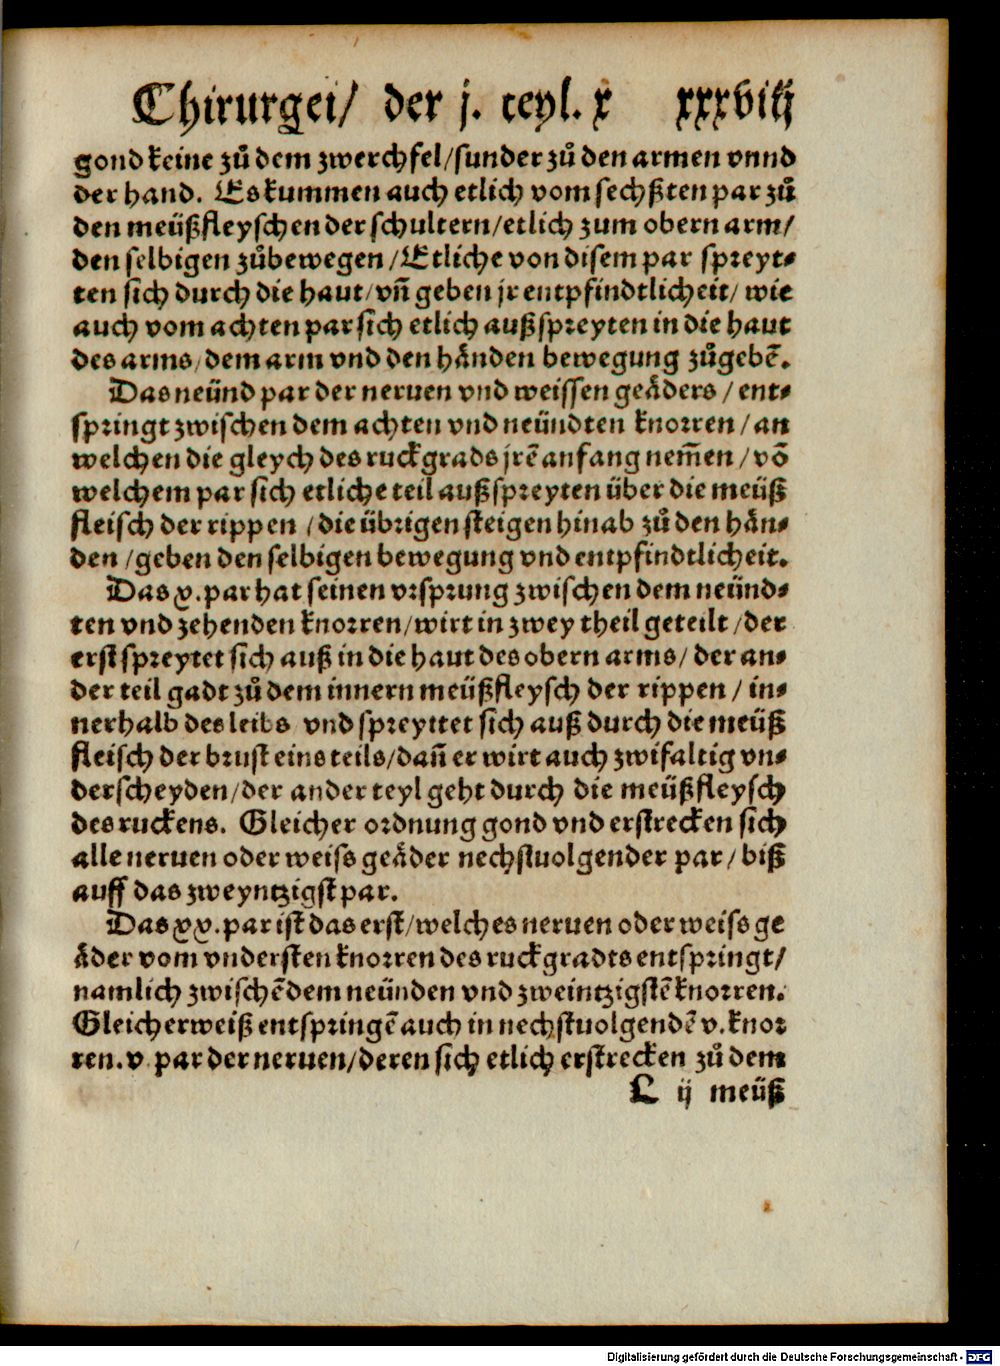 Chirurgei/ der j. teyl. x xxxviij
gond keine zů dem zwerchfel/sunder zů den armen vnnd
der hand. Es kummen auch etlich vom sechßten par zů
den meüßfleyschen der schultern/etlich zum obern arm/
den selbigen zůbewegen/Etliche von disem par spreyt⸗
ten sich durch die haut/vñ geben jr entpfindtlicheit/ wie
auch vom achten par sich etlich außspreyten in die haut
des arms/dem arm vnd den hånden bewegung zůgebẽ.
Das neünd par der neruen vnd weissen geåders/ ent⸗
springt zwischen dem achten vnd neündten knorren/an
welchen die gleych des ruckgrads jrẽ anfang nem̃en/võ
welchem par sich etliche teil außspreyten über die meüß
fleisch der rippen/die übrigen steigen hinab zů den hån⸗
den/geben den selbigen bewegung vnd entpfindtlicheit.
Das x. par hat seinen vrsprung zwischen dem neünd⸗
ten vnd zehenden knorren/wirt in zwey theil geteilt/der
erst spreytet sich auß in die haut des obern arms/ der an⸗
der teil gadt zů dem innern meüßfleysch der rippen/ in⸗
nerhalb des leibs vnd spreyttet sich auß durch die meüß
fleisch der brust eins teils/dañ er wirt auch zwifaltig vn⸗
derscheyden/der ander teyl geht durch die meüßfleysch
des ruckens. Gleicher ordnung gond vnd erstrecken sich
alle neruen oder weiss geåder nechstuolgender par/ biß
auff das zweyntzigst par.
Das xx. par ist das erst/welches neruen oder weiss ge
åder vom vndersten knorren des ruckgradts entspringt/
namlich zwischẽ dem neünden vnd zweintzigstẽ knorren.
Gleicherweiß entspringẽ auch in nechstuolgendẽ v. knor
ren. v par der neruen/deren sich etlich erstrecken zů dem
L ij meüß
Digitalisierung gefördert durch die Deutsche Forschungsgemeinschaft - DFG